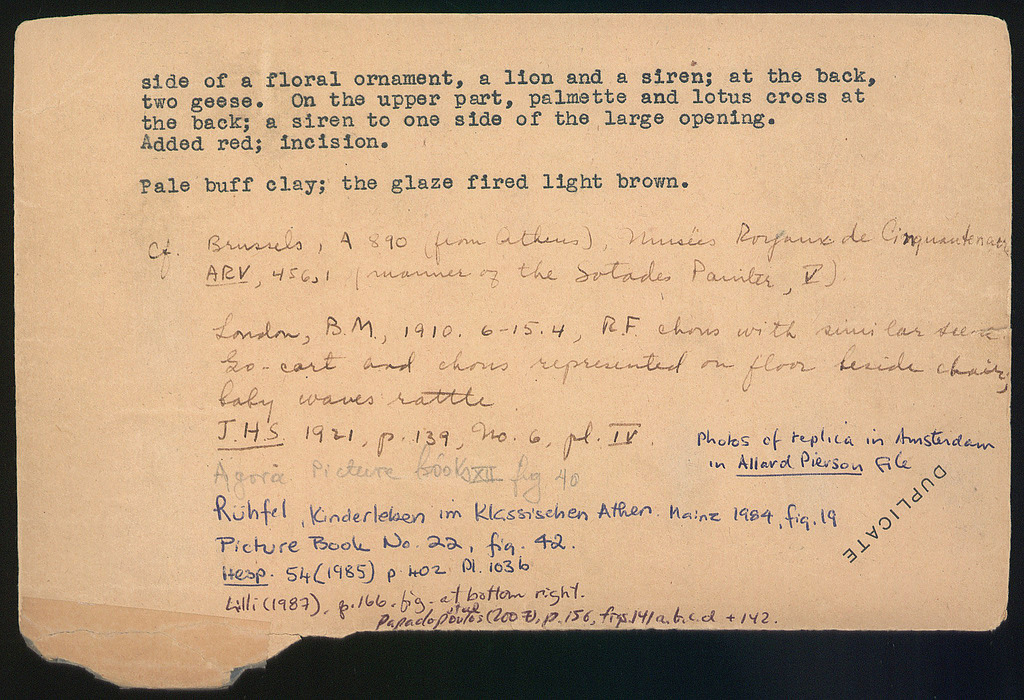 side of a floral ornament, a lion and a siren; at the back,
two geese. On the upper part, palmette and lotus cross at
the back; a siren to one side of the large opening.
Added red; incision.
Pale buff clay; the glaze fired light brown.
Cf. Brussels, A 890 (from Athens), Musées Royaux de Cinquantenaire
ARV, 456,1 (manner of the Sotades Painter, V).
London, B.M., 1910. 6-15.4, R.F. chous with similar
Go-cart and chous represented on floor beside chair;
baby waves rattle
J.H.S. 1921, p. 139, No. 6, pl. IV.
Photos of replica in Amsterdam
in Allard Pierson file
Agora Picture Book XII fig 40
DUPLICATE
Rühfel, Kinderleben im Klassischen Athen. Mainz 1984, fig. 19
Picture Book No. 22, fig. 42.
Hesp. 54 (1985) p 402 Pl. 103b
Lilli (1987), p. 166. fig. at bottom right.
Papadopoulos (2007), p. 156, figs. 141 a.b.c.d + 142.